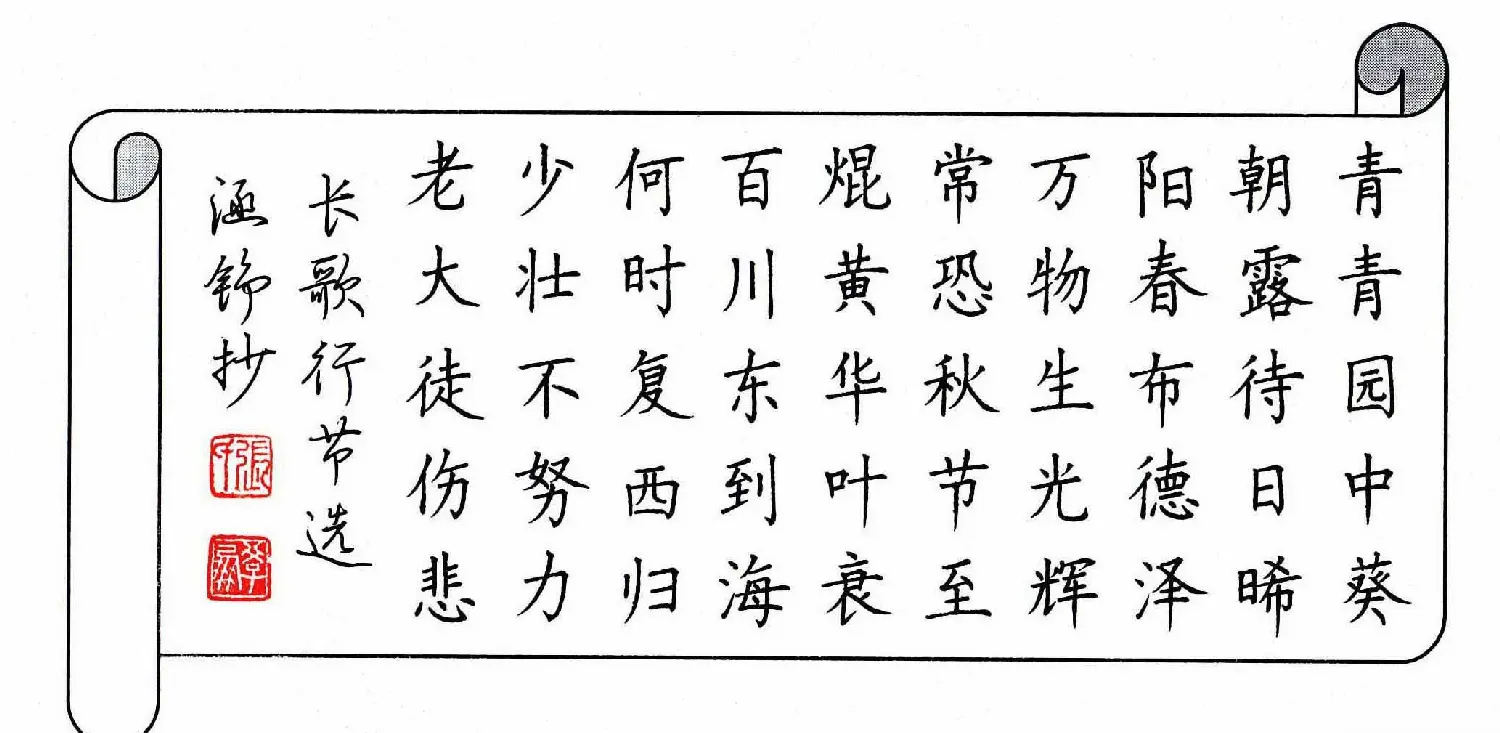 青青园中葵
朝露待日晞
阳春布德泽
万物生光辉
常恐秋节至
焜黄华叶衰
百川东到海
何时复西归
少壮不努力
老大徒伤悲
长歌行节选
涵铮抄